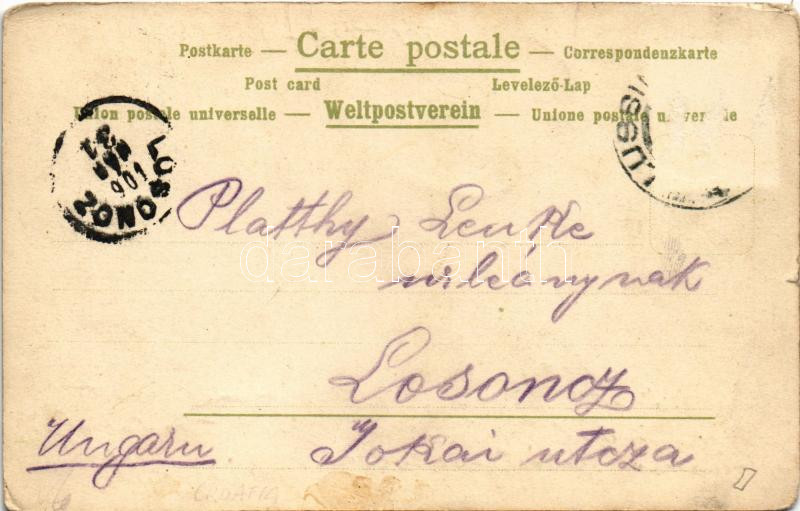 Postkarte — Carte postale — Correspondenzkarte
Post card Levelező-Lap
Union postale universelle — Weltpostverein — Unione postale universale
LOSONCZ
901
31
LUSSIN
Platthy Lenke
urleánynak
Losoncz
Ungarn
Jokai utcza
darabanth
CROATIA